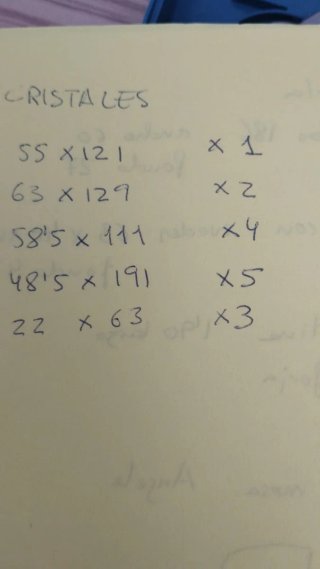 CRISTALES
55 x 121 x 1
63 x 129 x 2
58'5 x 111 x 4
48'5 x 191 x 5
22 x 63 x 3